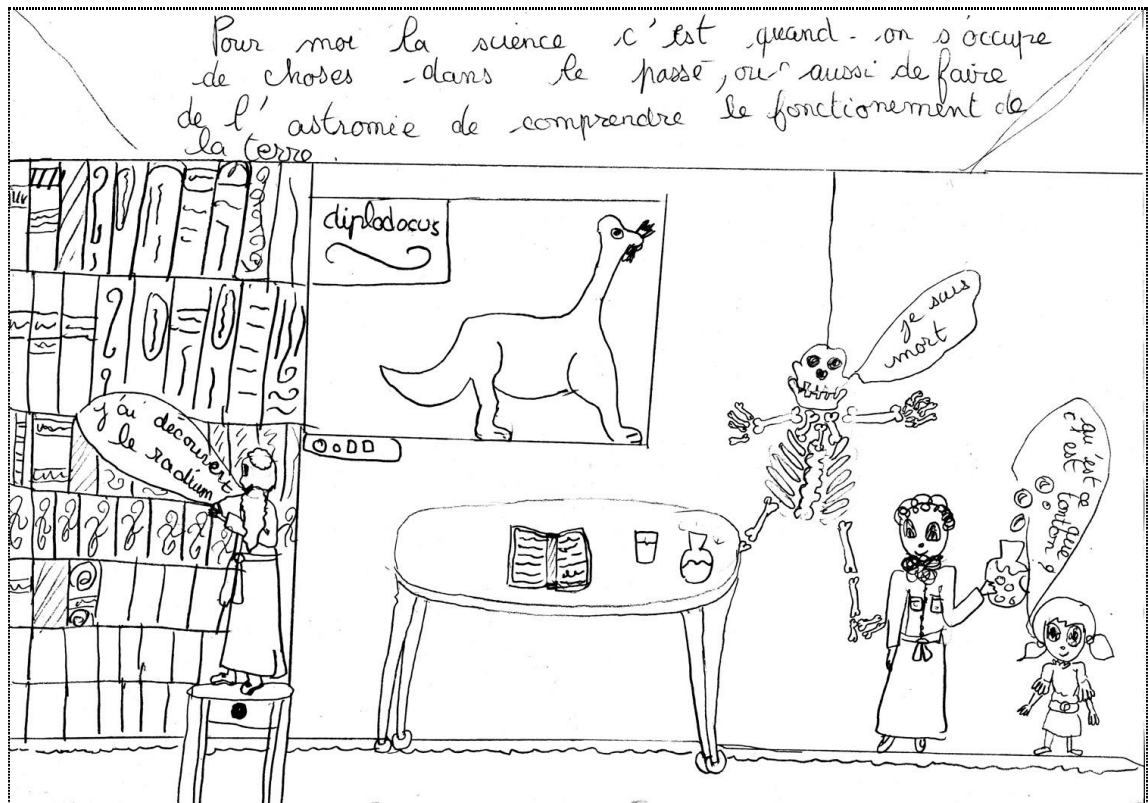 Pour moi la science c'est quand on s'occupe
de choses dans le passé, ou aussi de faire
de l'astromie de comprendre le fonctionement de
la terre.
diplodocus
je suis
mort
j'ai découvert
le radium
qu'est ce que
c'est tonton ?